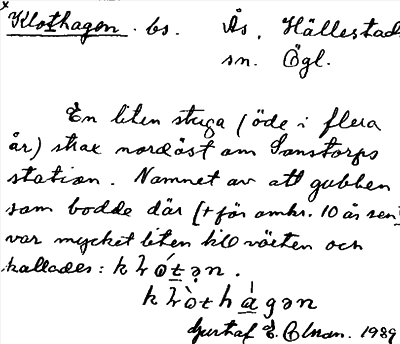 Klothagen. bs. Ås, Hällestads
sn. Ögl.
En liten stuga (öde i flera
år) strax nordost om Sonstorps
station. Namnet av att gubben
som bodde där [+ för omkr. 10 år sen]
var mycket liten till växten och
kallades:
Gustaf E. 1939